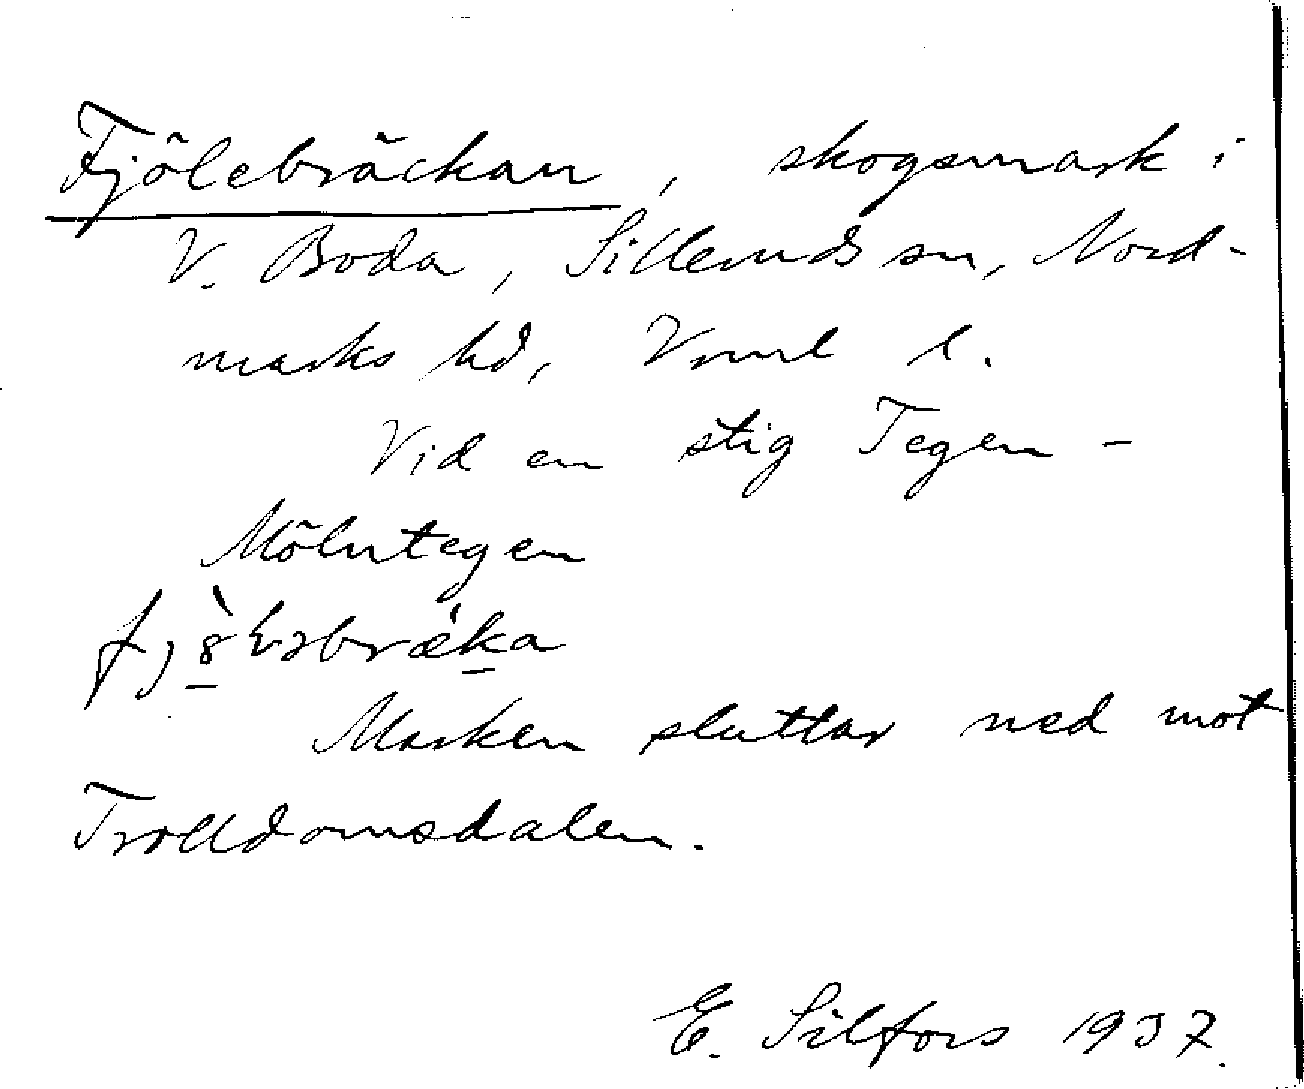 Fjölebräckan, skogsmark i
V. Boda, Sillerudssn, Nord-
marks hd, Vrml l.
Vid en stig Tegen -
Mölntegen
Marken sluttar ned mot
Trolldomsdalen.
E. Silfors 1937.